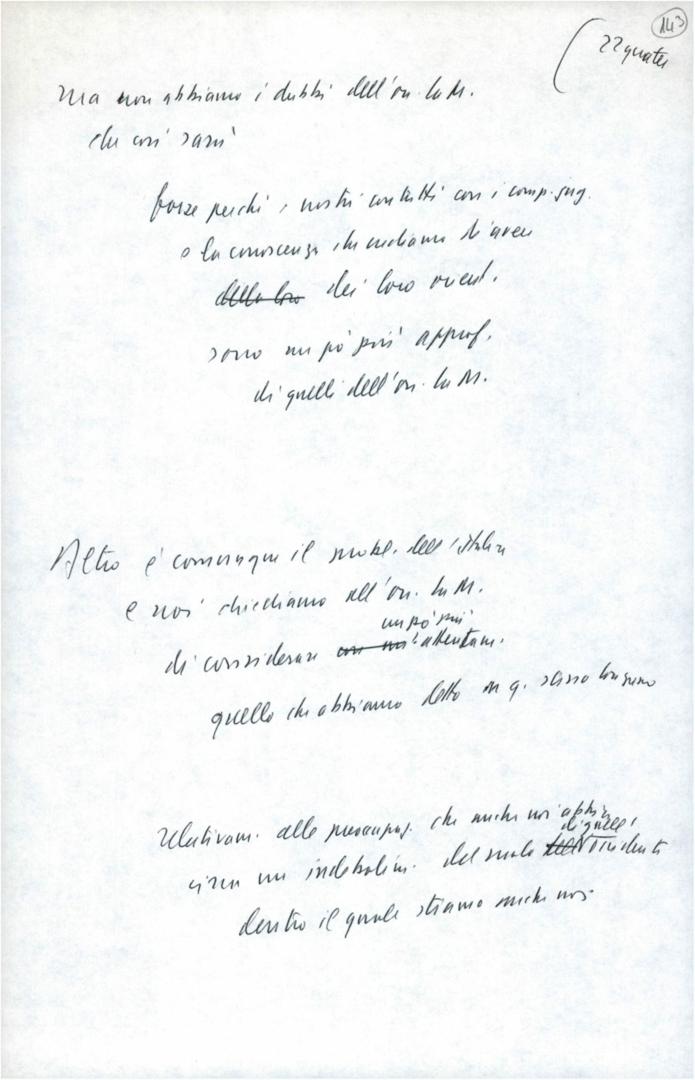 143
22 quater
Ma non abbiamo i dubbi dell'on. La M.
che così sarà
forse perché i nostri contatti con i comp. jug.
e la conoscenza che crediamo di avere
della loro dei loro orient.
sono un pò più approf.
di quelli dell'on. La M.
Altro è comunque il probl. dell'Italia
e noi chiediamo all'on. La M.
un pò più
di considerare con attentam.
quello che abbiamo detto in q. stesso
Relativam. alle preoccupaz. che anche noi abbia
di quelle
circa un indebolim. del
dentro il quale stiamo anche noi